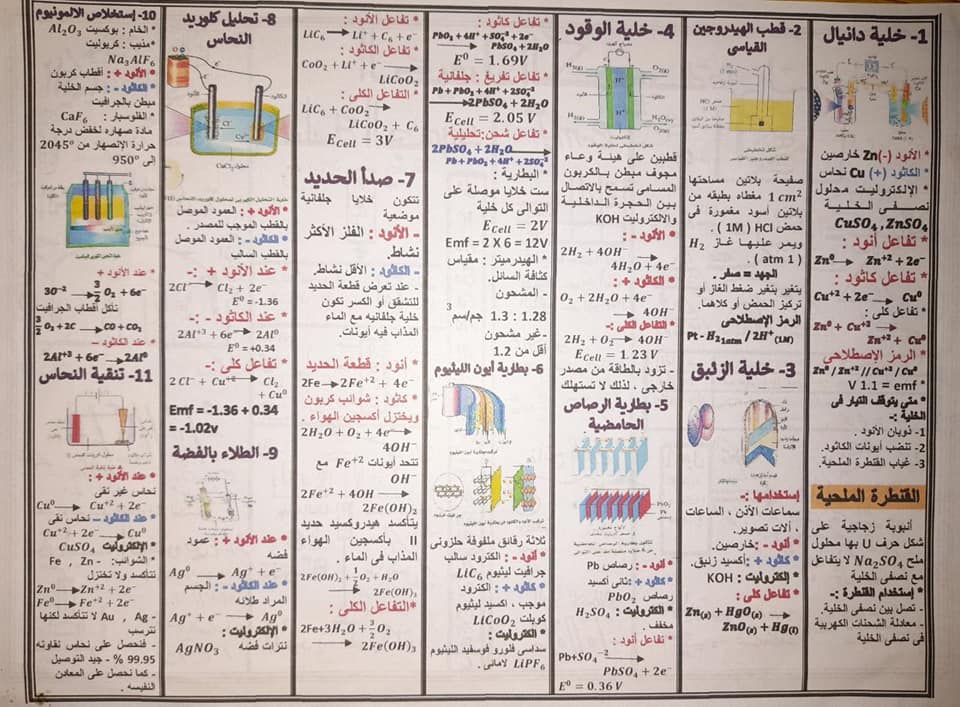 1- خلية دانيال
* الأنود (-) Zn خارصين
* الكاثود (+) Cu نحاس
* الإلكتروليت محلول
نصفى الخلية
CuSO4 , ZnSO4
* تفاعل أنود :
Zn⁰ → Zn⁺² + 2e⁻
* تفاعل كاثود :
Cu⁺² + 2e⁻ → Cu⁰
* تفاعل كلى :
Zn⁰ + Cu⁺² →
Zn⁺² + Cu⁰
* الرمز الإصطلاحى
Zn⁰ / Zn⁺² // Cu⁺² / Cu⁰
V 1.1 = emf *
* متى يتوقف التيار فى
الخلية :-
1- ذوبان الأنود .
2- تنضب أيونات الكاثود.
3- غياب القنطرة الملحية.
القنطرة الملحية
أنبوبة زجاجية على
شكل حرف U بها محلول
ملح Na2SO4 لا يتفاعل
مع نصفى الخلية
* إستخدام القنطرة :-
- تصل بين نصفى الخلية.
- معادلة الشحنات الكهربية
فى نصفى الخلية
2- قطب الهيدروجين
القياسى
صفيحة بلاتين مساحتها
1 cm² مغطاه بطبقه من
بلاتين أسود مغمورة فى
حمض HCl ( 1M ) .
ويمر عليها غاز H2
( 1 atm ) .
الجهد = صفر .
يتغير بتغير ضغط الغاز أو
تركيز الحمض أو كلاهما.
الرمز الإصطلاحى
Pt - H2 1atm / 2H⁺ (1M)
3- خلية الزئبق
إستخدامها :-
سماعات الأذن ، الساعات
، آلات تصوير.
* أنود :- خارصين.
* كاثود : أكسيد زئبق.
* إلكتروليت : KOH
* تفاعل كلى :
Zn(s) + HgO(s) →
ZnO(s) + Hg(l)
4- خلية الوقود
قطبين على هيئة وعاء
مجوف مبطن بالكربون
المسامى تسمح بالاتصال
بين الحجرة الداخلية
والالكتروليت KOH
* الأنود :-
2H2 + 4OH⁻ →
4H2O + 4e⁻
* الكاثود :+
O2 + 2H2O + 4e⁻
→ 4OH⁻
* التفاعل الكلى :-
2H2 + O2 → 4OH⁻
E Cell = 1.23 V
- تزود بالطاقة من مصدر
خارجى ، لذلك لا تستهلك
5- بطارية الرصاص
الحامضية
* أنود :- رصاص Pb
* كاثود + :ثانى أكسيد
رصاص PbO2
* الكتروليت : H2SO4
مخفف .
* تفاعل أنود :
Pb+SO4⁻² →
PbSO4 + 2e⁻
E⁰ = 0.36 V
* تفاعل كاثود :
PbO2 + 4H⁺ + SO4⁻² + 2e⁻
→ PbSO4 + 2H2O
E⁰ = 1.69V
* تفاعل تفريغ : جلفانية
Pb + PbO2 + 4H⁺ + 2SO4⁻²
→ 2PbSO4 + 2H2O
E Cell = 2.05 V
* تفاعل شحن:تحليلية
2PbSO4 + 2H2O →
Pb + PbO2 + 4H⁺ + 2SO4⁻²
* البطارية :
ست خلايا موصلة على
التوالى كل خلية
E Cell = 2V
Emf = 2 X 6 = 12V
* الهيدرميتر : مقياس
كثافة السائل.
- المشحون
1.28 : 1.3 جم/سم3
-غير مشحون
أقل من 1.2
6- بطارية أيون الليثيوم
ثلاثة رقائق ملفوفة حلزونى
* أنود- : الكترود سالب
جرافيت ليثيوم LiC6
* كاثود + : الكترود
موجب ، اكسيد ليثيوم
كوبلت LiCoO2
* الكتروليت :
سداسى فلورو فوسفيد الليثيوم
LiPF6 لامائى .
* تفاعل الأنود :
LiC6 → Li⁺ + C6 + e⁻
* تفاعل الكاثود :
CoO2 + Li⁺ + e⁻ →
LiCoO2
* التفاعل الكلى :
LiC6 + CoO2 →
LiCoO2 + C6
E Cell = 3V
7- صدأ الحديد
تتكون خلايا جلفانية
موضعية
- الأنود : الفلز الأكثر
نشاط.
- الكاثود : الأقل نشاط.
- عند تعرض قطعة الحديد
للتشقق أو الكسر تكون
خلية جلفانيه مع الماء
المذاب فيه أيونات.
* أنود : قطعة الحديد
2Fe → 2Fe⁺² + 4e⁻
* كاثود : شوائب كربون
ويختزل أكسجين الهواء .
2H2O + O2 + 4e⁻ →
4OH⁻
تتحد أيونات Fe⁺² مع
OH⁻
2Fe⁺² + 4OH →
2Fe(OH)2
يتأكسد هيدروكسيد حديد
II بأكسجين الهواء
المذاب فى الماء .
2Fe(OH)2 + ½O2 + H2O
→ 2Fe(OH)3
*التفاعل الكلى :
2Fe+3H2O + 3/2 O2
→ 2Fe(OH)3
8- تحليل كلوريد
النحاس
محلول CuCl2
* الأنود + : العمود الموصل
بالقطب الموجب للمصدر .
* الكاثود - : العمود الموصل
بالقطب السالب
* عند الأنود + :-
2Cl⁻ → Cl2 + 2e⁻
E⁰ = -1.36
* عند الكاثود - :-
2Al⁺³ + 6e⁻ → 2Al⁰
E⁰ = +0.34
* تفاعل كلى :-
2 Cl⁻ + Cu⁺² → Cl2
+ Cu⁰
Emf = -1.36 + 0.34
= -1.02v
9- الطلاء بالفضة
* عند الأنود + : عمود
فضه
Ag⁰ → Ag⁺ + e⁻
* عند الكاثود - : الجسم
المراد طلائه
Ag⁺ + e⁻ → Ag⁰
* الإلكتروليت :
نترات فضه AgNO3
10- إستخلاص الالمونيوم
* الخام : بوكسيت Al2O3
*مذيب : كريوليت
Na3AlF6
* الأنود + : أقطاب كربون
* الكاثود - : جسم الخلية
مبطن بالجرافيت
* الفلوسبار : CaF6
مادة صهاره لخفض درجة
حرارة الإنصهار من 2045°
الى 950°
* عند الأنود +
3O⁻² → 3/2 O2 + 6e⁻
تآكل أقطاب الجرافيت
3/2 O2 + 2C → CO + CO2
* عند الكاثود –
2Al⁺³ + 6e⁻ → 2Al⁰
11- تنقية النحاس
* عند الأنود + :
نحاس غير نقى
Cu⁰ → Cu⁺² + 2e⁻
* عند الكاثود – نحاس نقى
Cu⁺² + 2e⁻ → Cu⁰
* الإلكتروليت CuSO4
* الشوائب: - Fe , Zn
تتأكسد ولا تختزل
Zn⁰ → Zn⁺² + 2e⁻
Fe⁰ → Fe⁺² + 2e⁻
- Au , Ag لا تتأكسد لكنها
تترسب
- فنحصل على نحاس نقاوته
99.95 % - جيد التوصيل
- كما نحصل على المعادن
النفيسه .